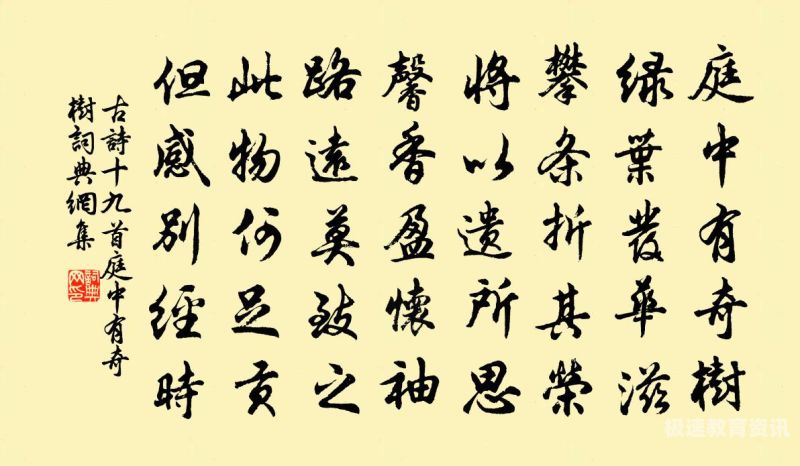 庭中有奇樹
绿葉發華滋
攀条折其榮
將以遗所思
馨香盈懷袖
路遠莫致之
此物何足贡
但感别經時
古詩十九首庭中有奇
樹詞典網集
极速教育资讯